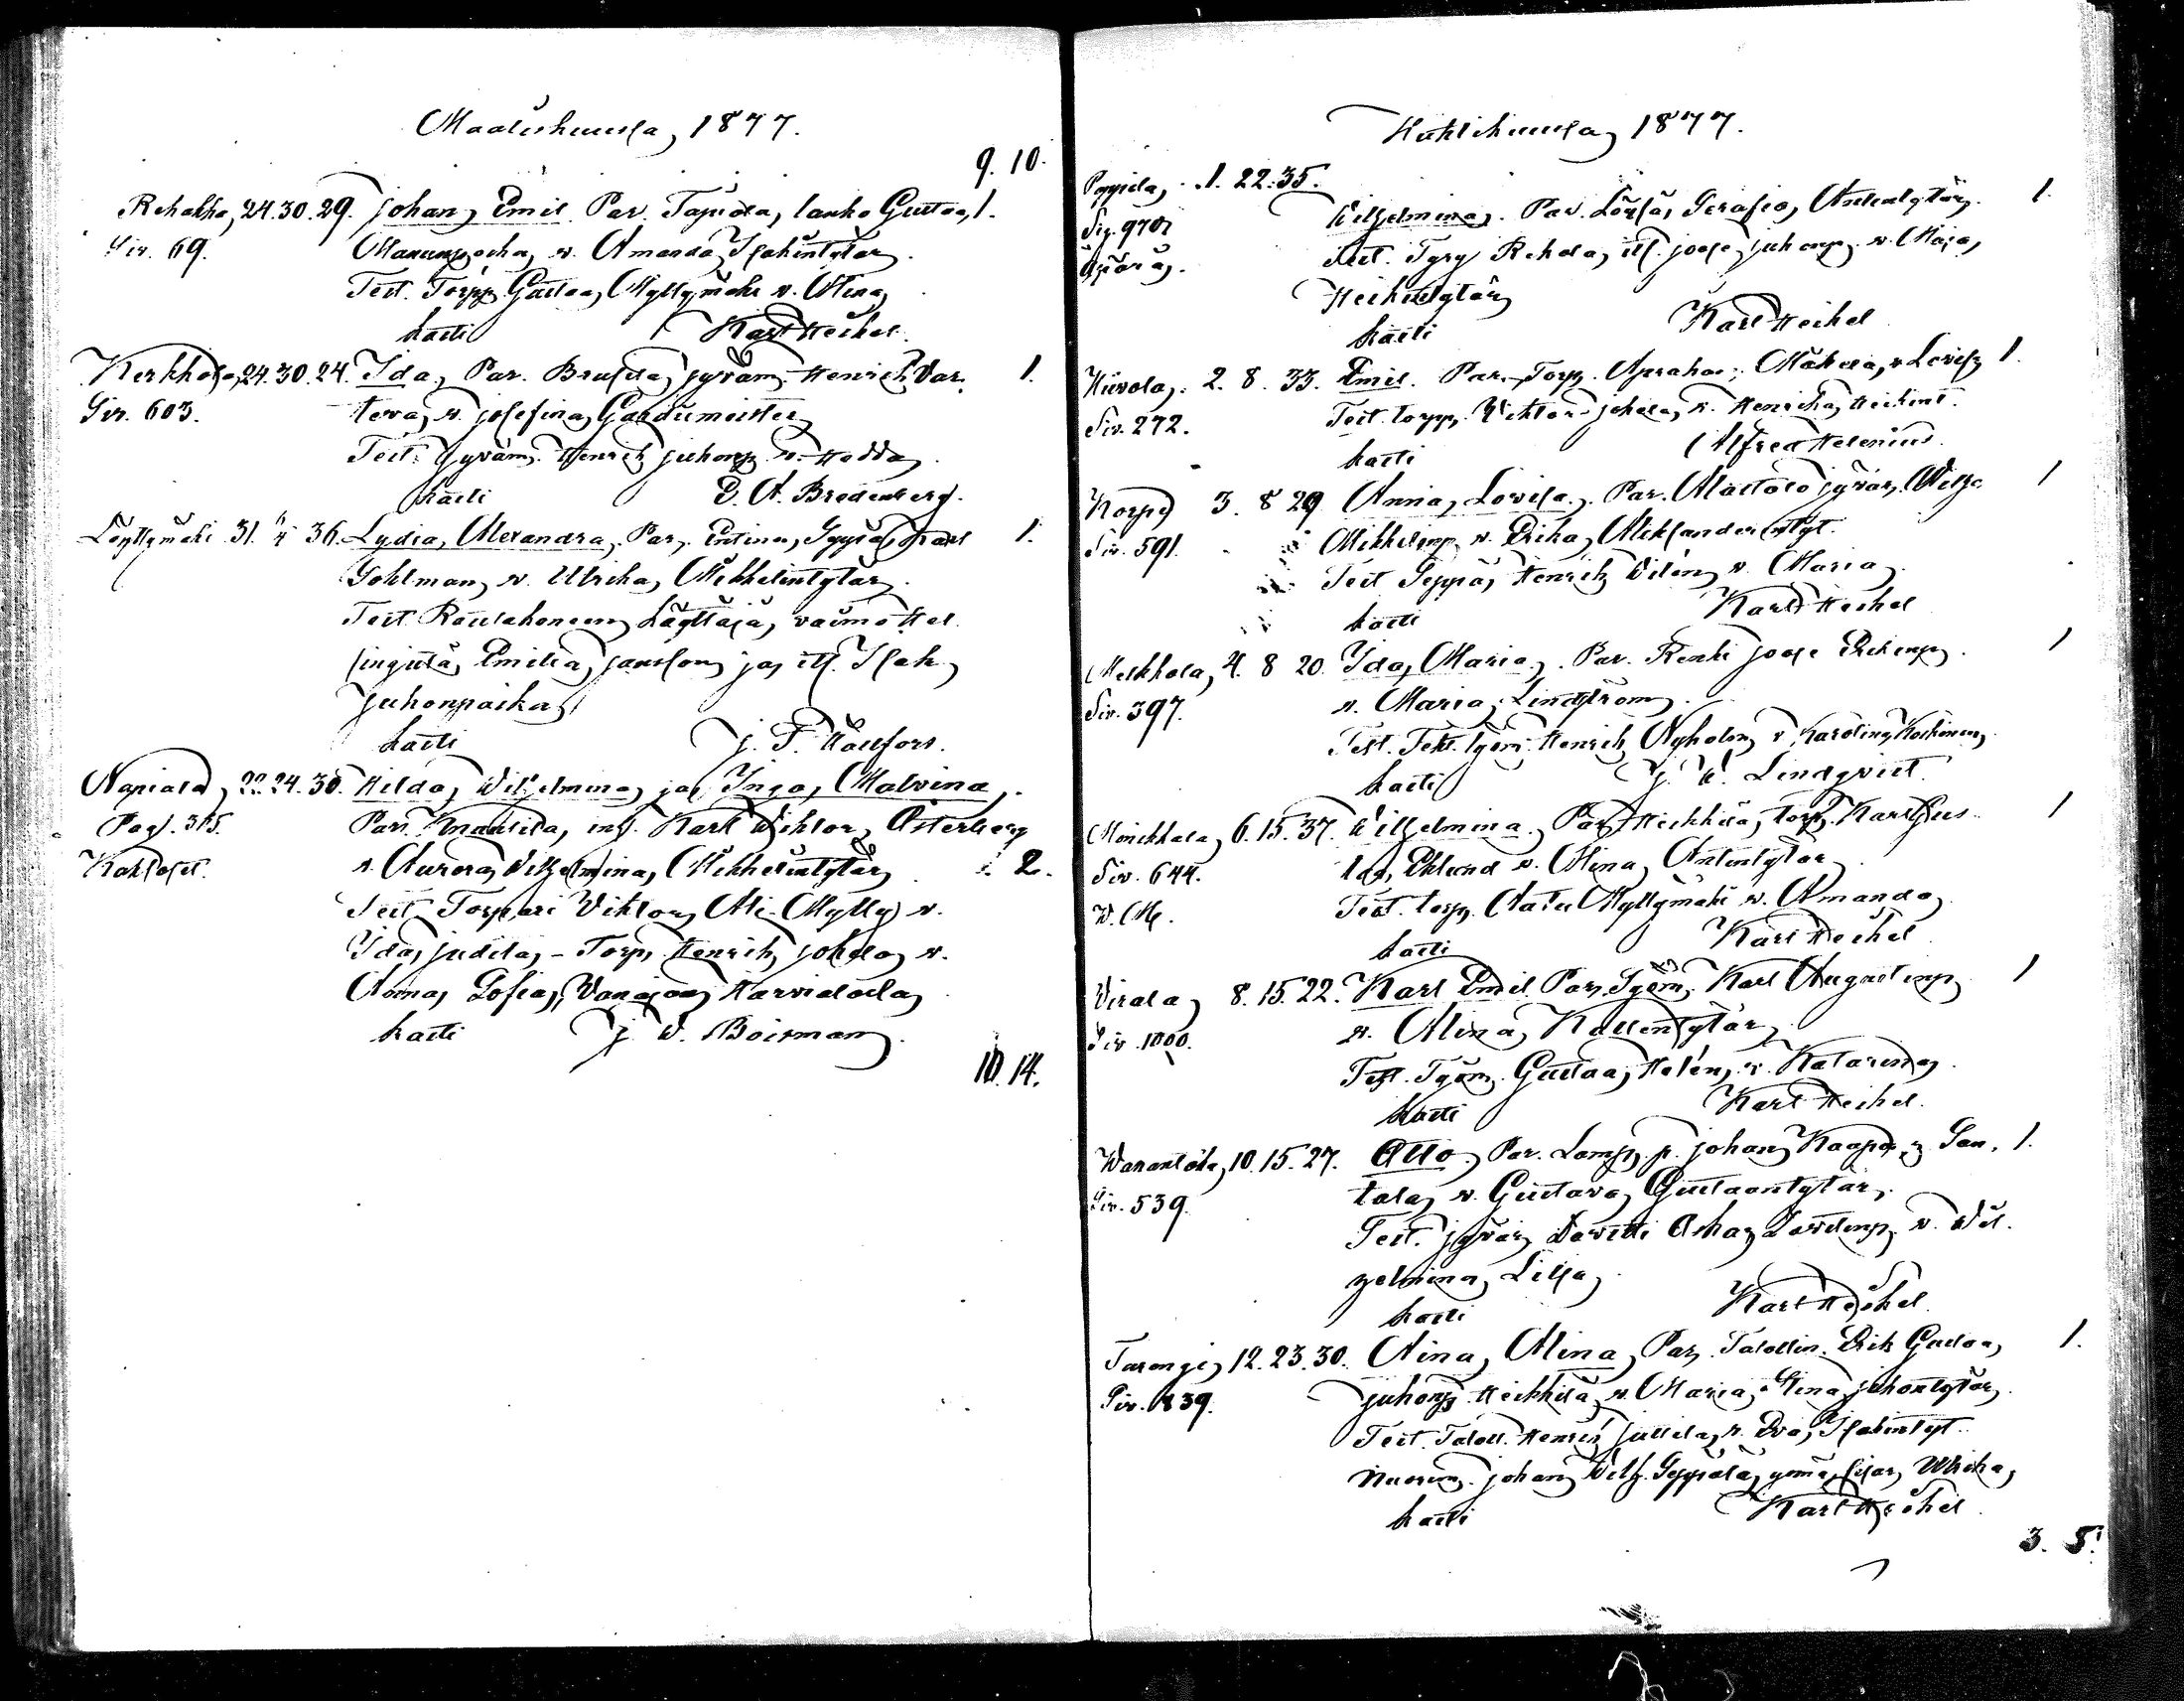 Maaliskuussa, 1877.
9. 10.
Rehakka, 24. 30. 29. Johan, Emil. Par. Tapiola, lanko Gustaa, 1.
Siv. 69. Manunpoika, v. Amanda Isakintytär.
Test. Torpp. Gustaa, Myllymäki v. Stina,
kasti Karl Heikel.
Kerkkola, 24. 30. 24. Ida, Par. Brusila, jyväm. Henrik Var. 1.
Siv. 603. tera, v. Josefina, Gardumeister,
Test. Jyväm. Henrik Juhonp. v. Hedda,
kasti E. A. Bredenberg.
Löyttymäki 31. 4/4 36. Lydia, Alexandra, Par. Entinen, Seppä, Frans 1.
Sohlman, v. Ulrika, Mikkelintytär,
Test. Raulahoneen käyttäjä, vaimo Hel.
singistä, Emilia, Jansson, ja, itl. Isak,
Juhonpoika,
kasti J. F. Hällfors.
Napiala, 22. 24. 30. Hilda, Wilhelmina, ja, Inga, Malvina,
Pag. 315. Par. Anantila, inh. Karl Viktor, Österberg
Kaksoset. v. Aurora, Vilhelmina, Mikkelintytär, 2.
Test. Torppari Viktor, Ali-Mylly v.
Ida, Judita, - Torp. Henrik, Johela, v.
Anna, Sofia, Vanajan, Harvialasta,
kasti J. W. Boisman.
10. 14.
Huhtikuussa, 1877.
1. 22. 35. Vilhelmina, Par. Serafia, Antintytär. 1.
Siv. 970
Äpärä. Test. Rehola, itl. Joose, Juhonp. v. Maja,
Heikintytär,
kasti Karl Heikel
Hiivola, 2. 8. 33. Emil. Par. Torp. Apraham, Mäkelä, v. Lovisa, 1.
Siv. 272. Test. torpp. Viktor Johela, v. Henrika, Heikint.
kasti Alfred Helenius.
Korpi 3. 8 29 Anna, Lovisa, Par. Alastalo jyväm. Wilh. 1
Siv. 591. Mikkelinp. v. Erika, Aleksanderintyt.
Test Seppä, Henrik Vilén, v. Maria,
kasti Karl Heikel
Merkkola, 4. 8 20. Ida, Maria, Par. Renki Joose Erikinp. 1
Siv. 397. v. Maria, Lindström,
Test. Henrik, Nyholm, v. Karolina, Koskinen,
kasti J. W. Lindqvist.
Monikkala, 6. 15. 37. Wilhelmina, Par. Heikkilä, torp. Karl Gus. 1
Siv. 644. taa, Eklund v. Stina, Antintytär,
W. M. Test. torp. Aatu Myllymäki v. Amanda,
kasti Karl Heikel
Virala, 8. 15. 22. Karl Emil. Par. Työm. Karl Augustinp. 1
Siv. 1000. v. Alina, Kallentytär,
Test. Työm. Gustaa, Helén, v. Katarina,
kasti Karl Heikel.
Waranlaka, 10. 15. 27. Otto, Par. Lamp. p. Johan, Kaapo, San. 1.
Siv. 539. tala, v. Gustava, Gustaantytär,
Test. jyväm. Davitti Oskar, Davidinp. v. Vil.
helmina, Lilja,
kasti Karl Heikel.
Turengi, 12. 23. 30. Aina, Alina, Par. Talollin. Erik Gustaa, 1.
Siv. 839. Juhonp. Heikkilä, v. Maria, Stina, Juhontytär,
Test. Taloll. Henrik Jussila, v. Eva, Isakintyt.
Nuorim. Johan, Vilh. Seppälä, sisar, Ulrika,
kasti Karl Heikel.
3. 5.